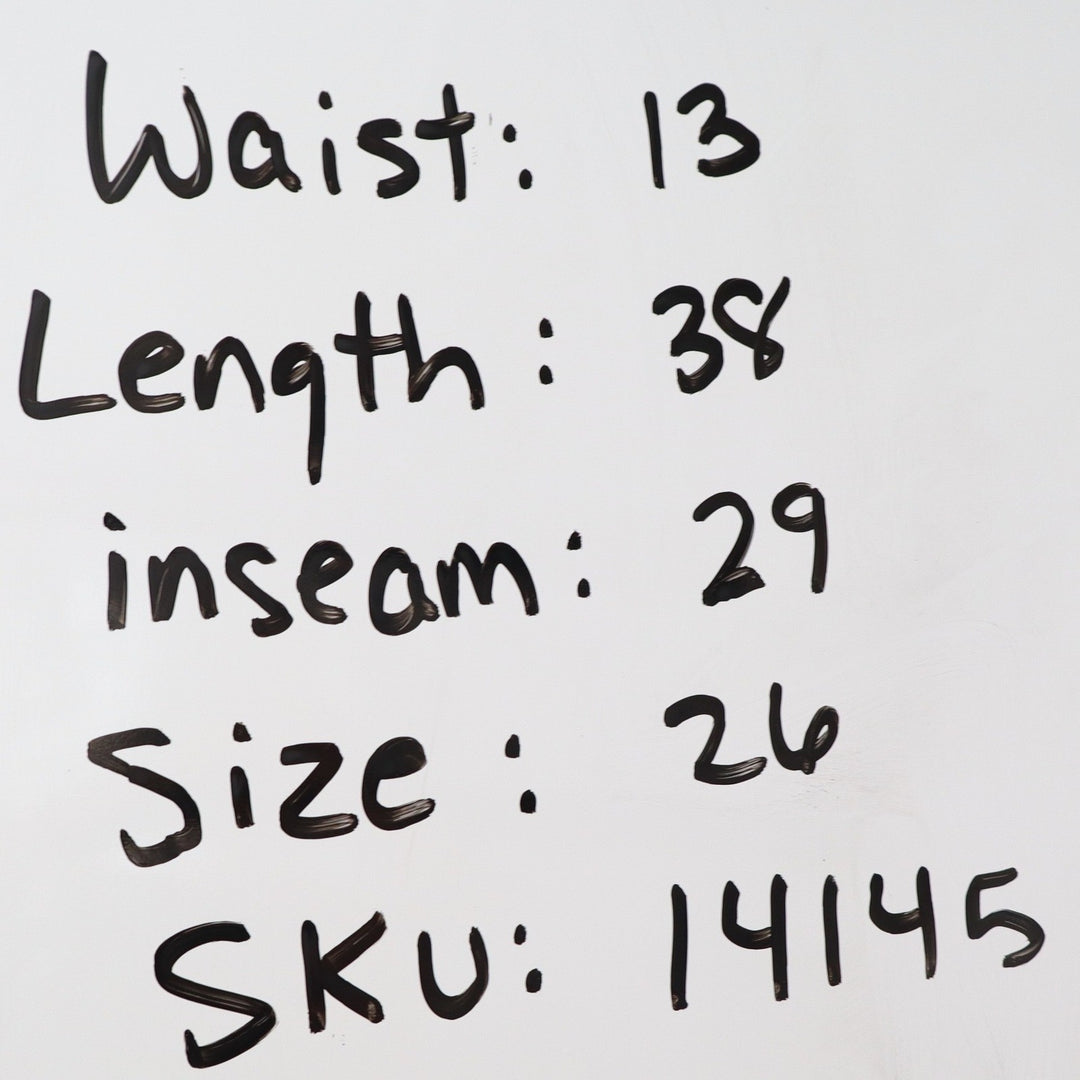 Waist: 13
Length: 38
inseam: 29
Size: 26
SKU: 14145